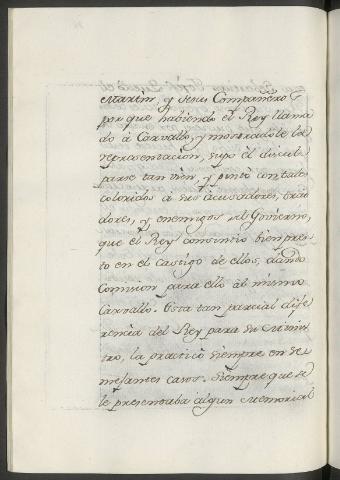 Martin, y desu Compañero
porque habiendo el Rey llama
do à Carvallo, y mostradole la
representacion, supo el discul
parse tan vien, y pintò con tales
coloridos à sus acusadores, trai
dores, y enemigos del Govierno,
que el Rey consintio bien pres
to en el castigo de ellos, dando
Comision para ello àl mismo
Carvallo. Esta tan parcial dife
rencia del Rey para su Minis
tro, la practicò siempre en se
mejantes casos. Siempre que se
le presentaba algun Memorial